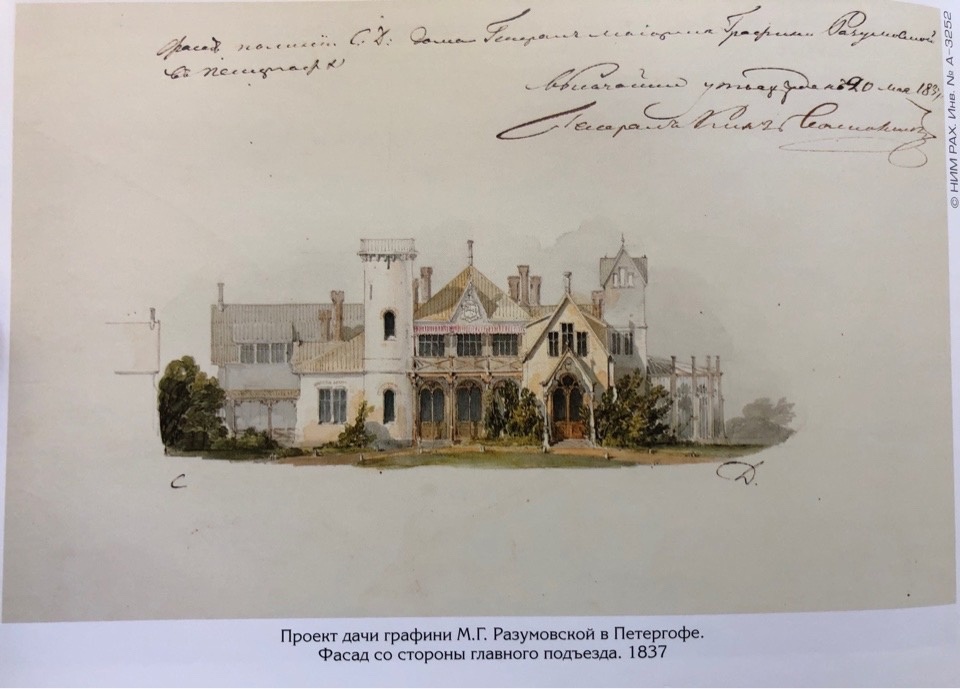 Фасадъ по линіи С. Д: дома Генералъ маіорши Графини Разумовской
въ Петергофѣ
Высочайше утвержденъ 20 мая 1837,
Генералъ
© НИМ РАХ. Инв. № А-3252
С
D.
Проект дачи графини М.Г. Разумовской в Петергофе.
Фасад со стороны главного подъезда. 1837